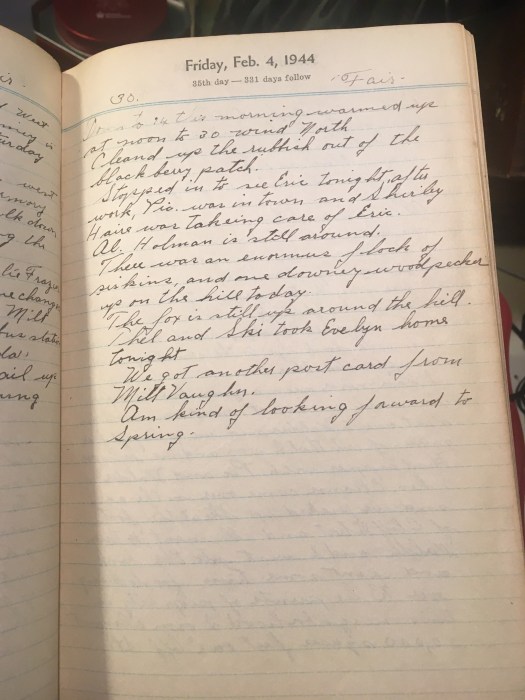 Friday, Feb. 4, 1944
35th day — 331 days follow
30.
Fair.
to 24 this morning warmed up
at noon to 30 wind North
Cleand up the rubbish out of the
blackbery patch.
Stopped in to see Eric tonight after
work, Vio. was in town and Shirley
Haire was takeing care of Eric.
Al. Holman is still around.
Thee was an enormus flock of
siskins, and one downey woodpecker
up on the hill today.
The fox is still up around the hill.
Phil and Ski took Evelyn home
tonight
We got another post card from
Milt Vaughn.
Am kind of looking forward to
Spring.
West
is
turday
west
the
lie Frazer
Milt
ail up